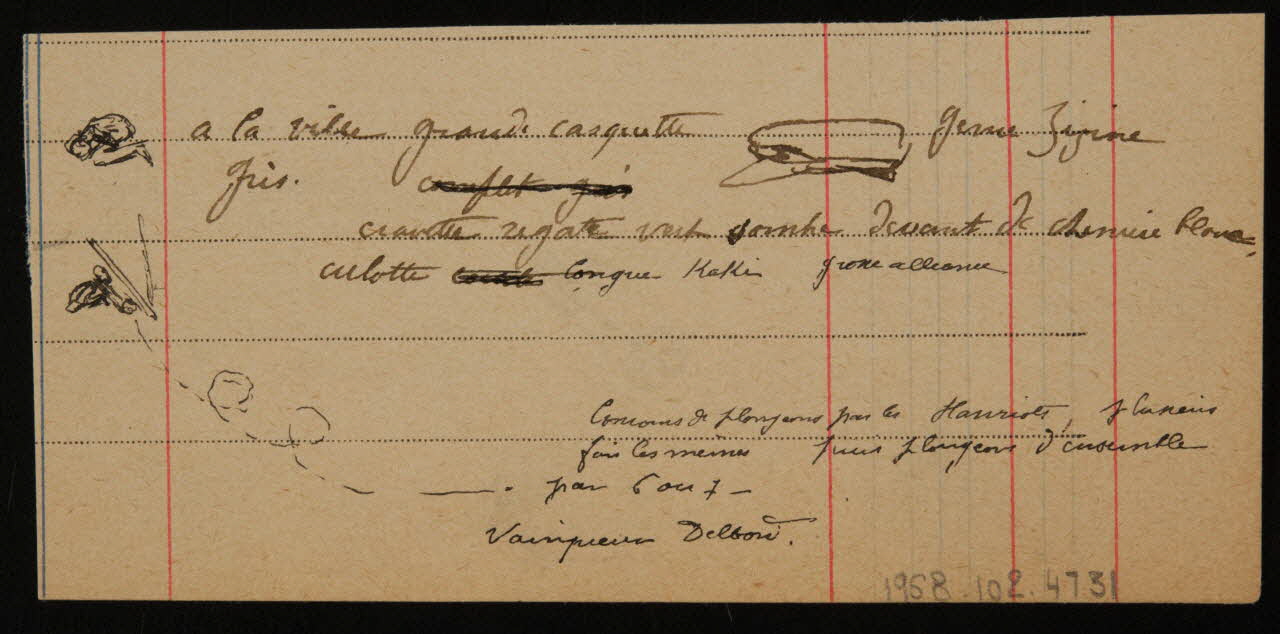 a la ville grande casquette genre Zizine
gris. complet gris
cravate regate vert sombre devant de chemise blanc
culotte longue Kaki grosse alliance
Concours de plongeons par les Hanriots, plusieurs
fois les memes puis plongeons d'ensemble
par 6 ou 7 -
Vainqueur Delbord.
1968.102.4731